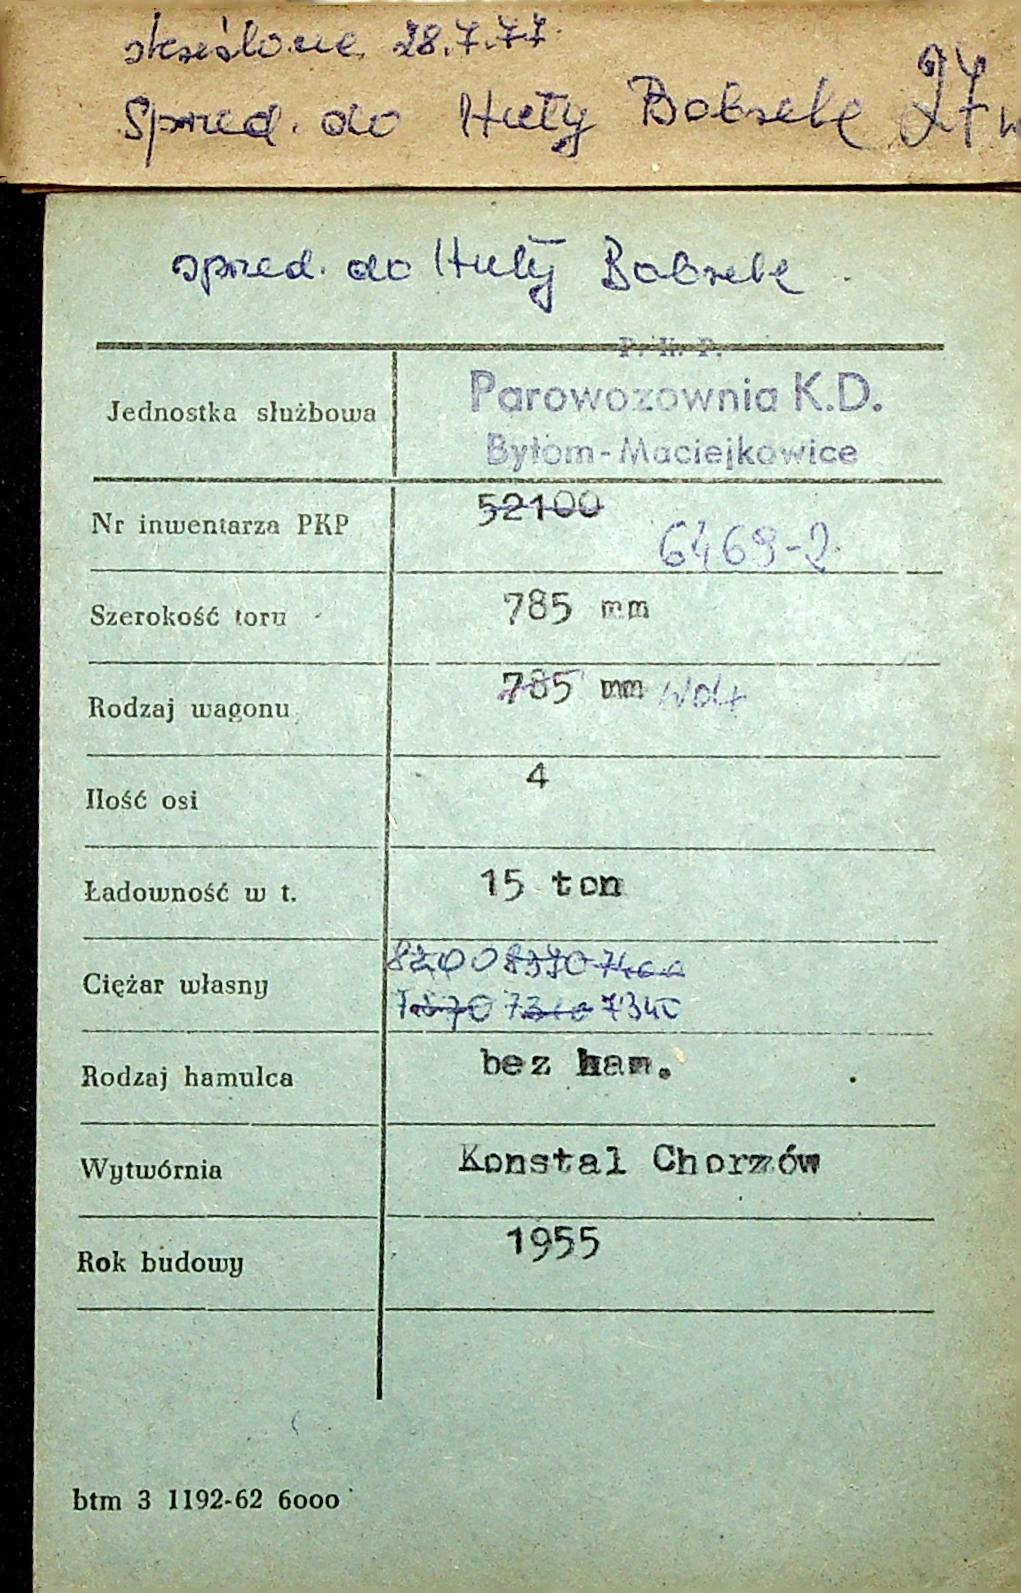 skreślone 28.7.77.
Spred. do Huty Bobrek 27 w
spred. do Huty Bobrek.
P. K. P.
Jednostka służbowa Parowozownia K.D.
Bytom-Maciejkowice
Nr inwentarza PKP 52100
6469-2
Szerokość toru 785 mm
Rodzaj wagonu 785 mm Wddx
Ilość osi 4
Ładowność w t. 15 ton
Ciężar własny 8200 8370 7400
7340
Rodzaj hamulca bez ham.
Wytwórnia Konstal Chorzów
Rok budowy 1955
btm 3 1192-62 6000